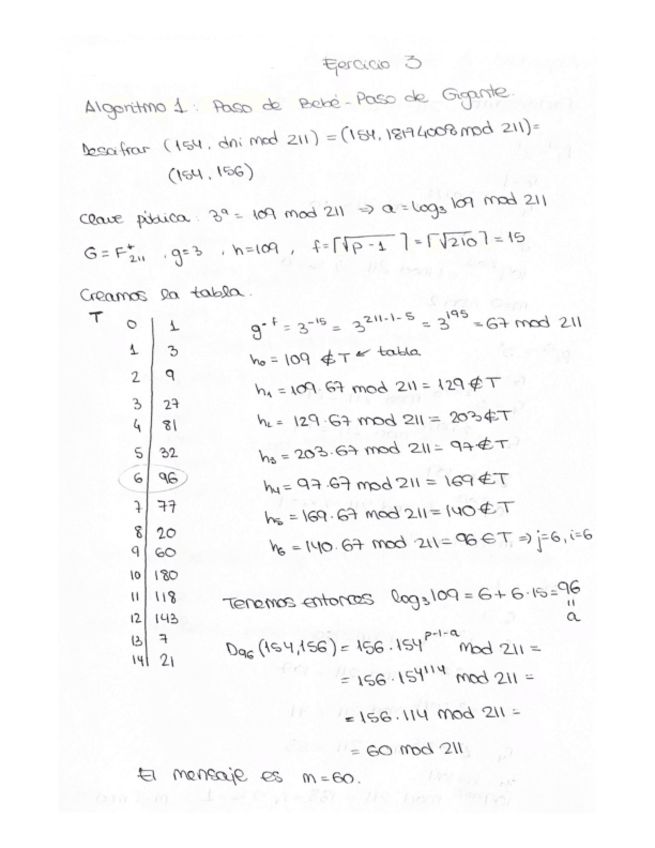 Ejercicio 3
Algoritmo 1: Paso de Bebé-Paso de Gigante.
Descifrar (154, dni mod 211) = (154, 18174008 mod 211)=
(154, 156)
Clave pública: 3^a = 109 mod 211 ⇒ a = log₃ 109 mod 211
G = F*₂₁₁, g=3, h=109, f=⌈√p-1⌉=⌈√210⌉=15
Creamos la tabla.
T
0 | 1
1 | 3
2 | 9
3 | 27
4 | 81
5 | 32
6 | 96
7 | 77
8 | 20
9 | 60
10 | 180
11 | 118
12 | 143
13 | 7
14 | 21
g^-f = 3^-15 = 3^211-1-5 = 3^195 = 67 mod 211
h₀ = 109 ∉ T ← tabla
h₁ = 109·67 mod 211 = 129 ∉ T
h₂ = 129·67 mod 211 = 203 ∉ T
h₃ = 203·67 mod 211 = 97 ∉ T
h₄ = 97·67 mod 211 = 169 ∉ T
h₅ = 169·67 mod 211 = 140 ∉ T
h₆ = 140·67 mod 211 = 96 ∈ T, ⇒ j=6, i=6
Tenemos entonces log₃109 = 6+6·15=96
=
a
D₉₆(154,156) = 156·154^p-1-a mod 211 =
= 156·154^114 mod 211 =
= 156·114 mod 211 =
= 60 mod 211
El mensaje es m=60.